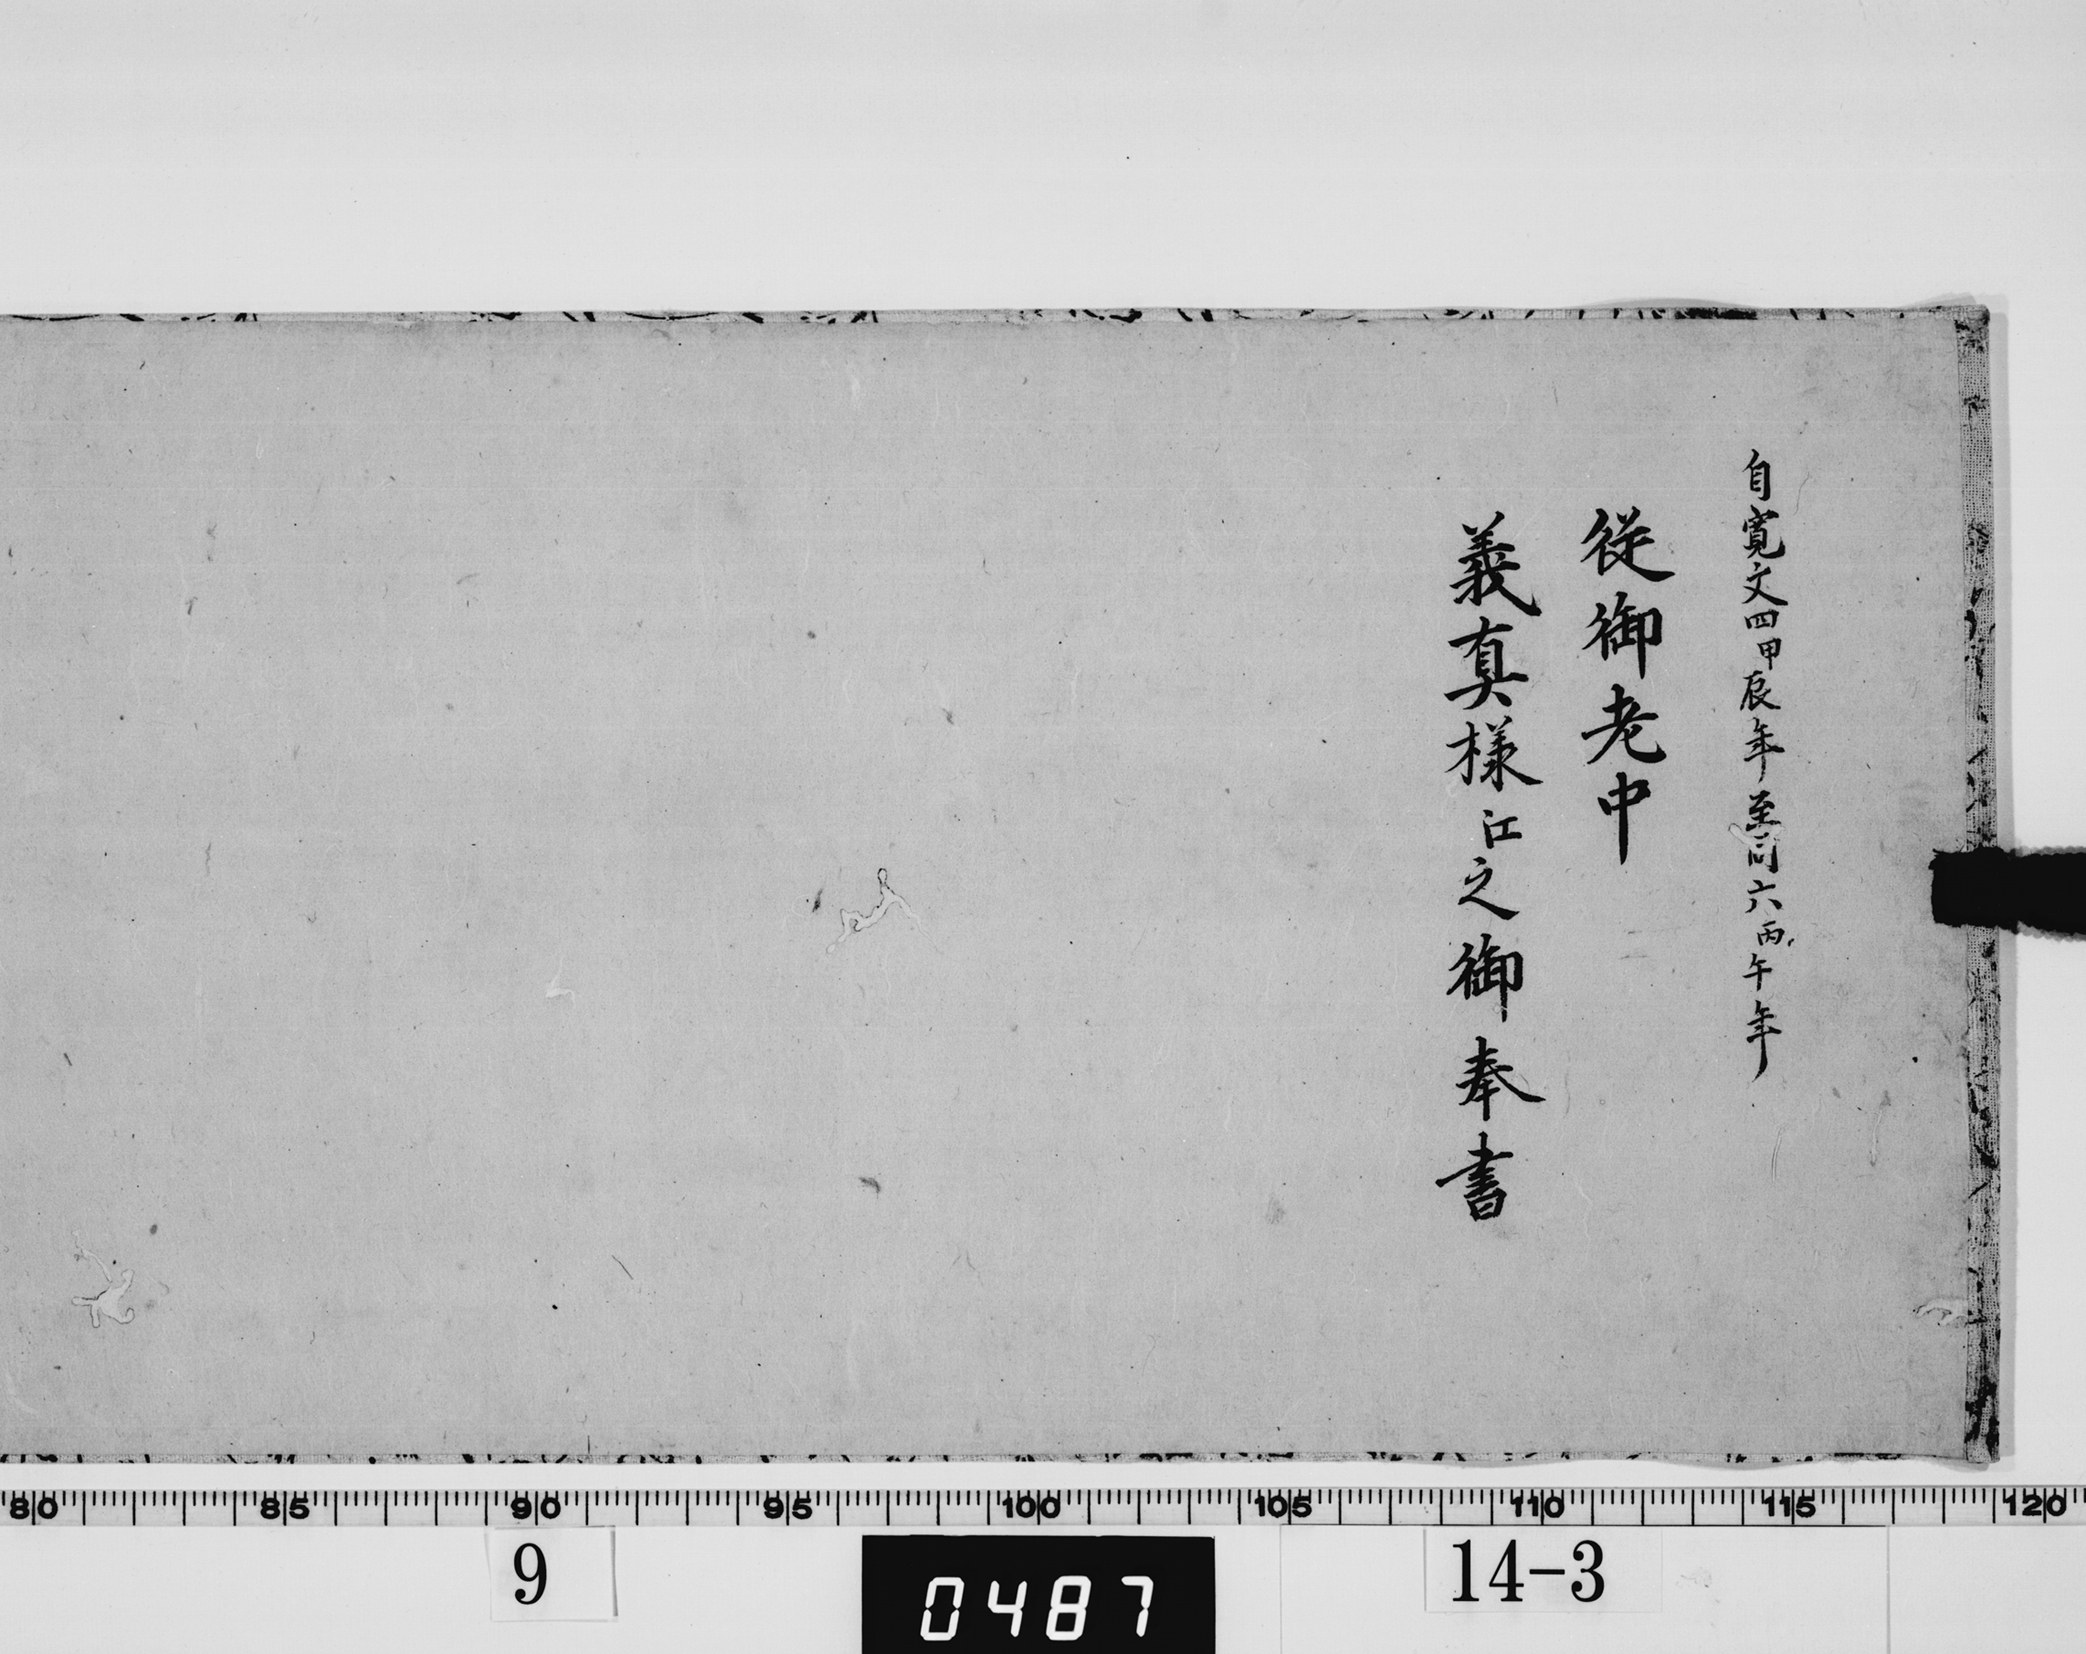 自寛文四甲辰年至同六丙午年
従御老中
義真様江之御奉書
80 85 90 95 100 105 110 115 120
9
0487
14-3